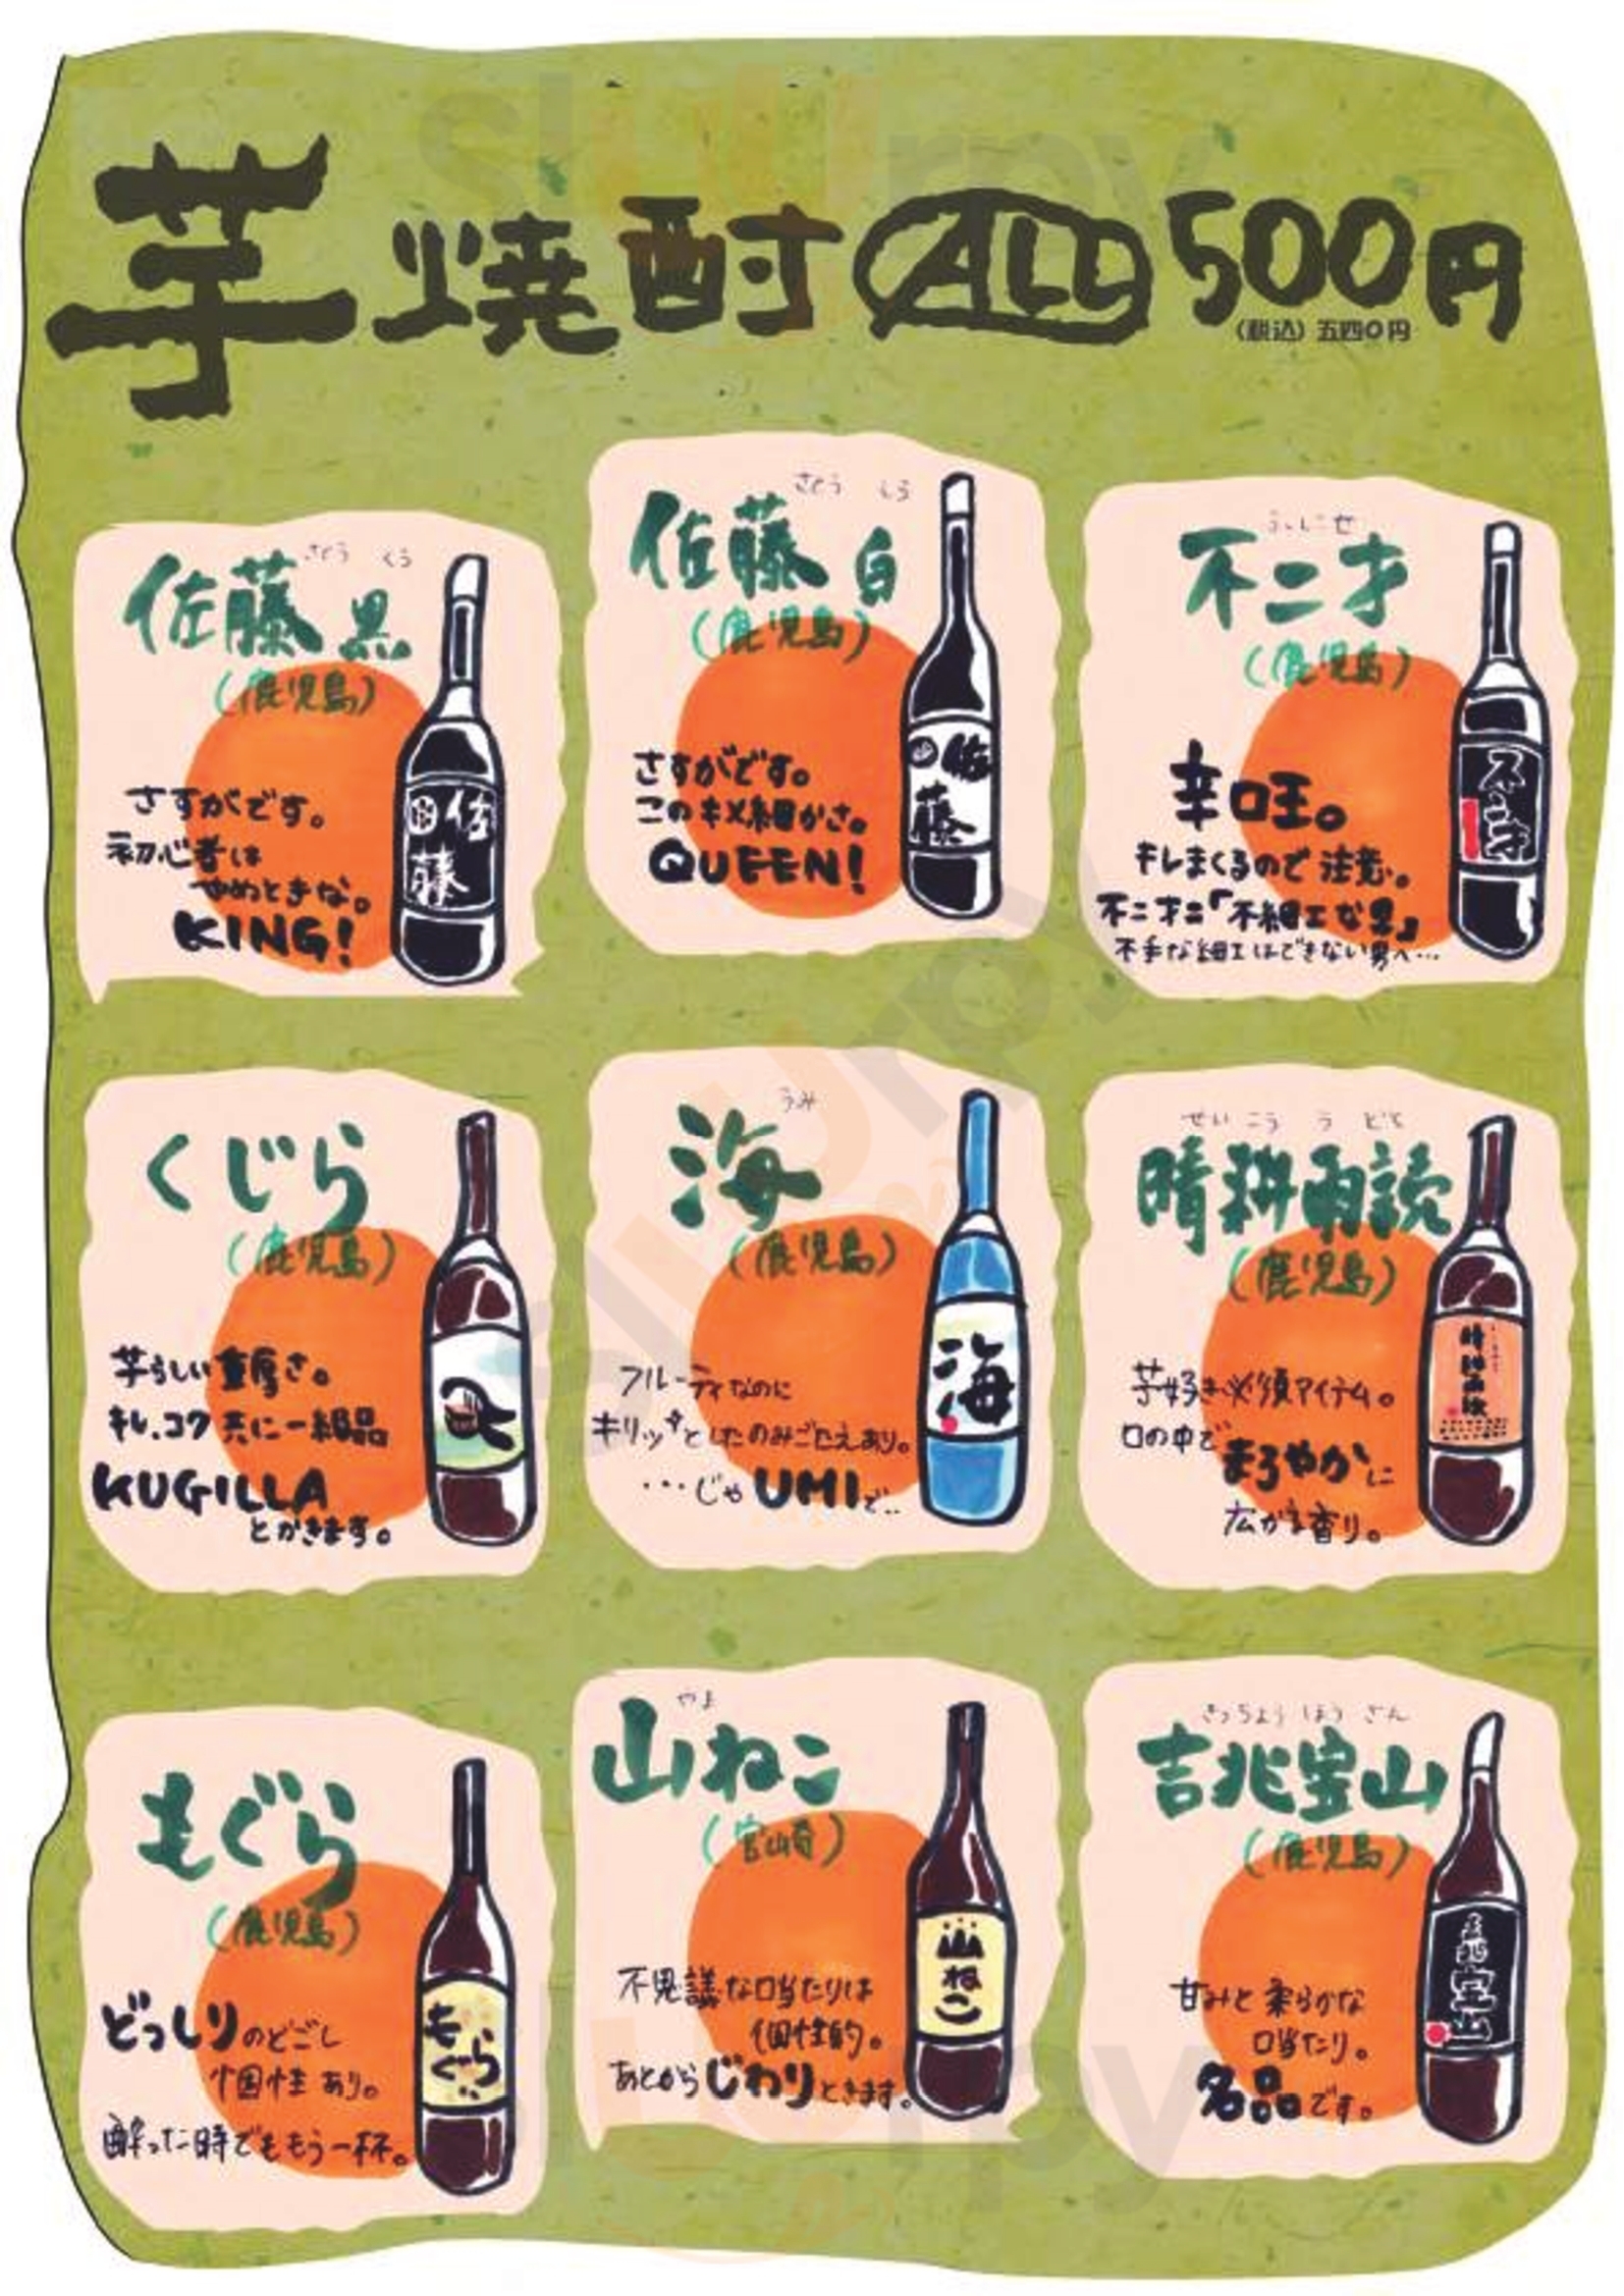 芋焼酎 ALL 500円
(税込) 五四〇円
さとう くろ
佐藤 黒
(鹿児島)
さすがです。
初心者は
やめときな。
KING!
佐藤
さとう しろ
佐藤 白
(鹿児島)
さすがです。
このキメ細かさ。
QUEEN!
佐藤
不二才
(鹿児島)
辛口王。
キレまくるので注意。
不二才=「不細工な男」
不手な細工はできない男へ…
不二才
くじら
(鹿児島)
芋らしい重厚さ。
キレ、コク共に一級品
KUGILLA
とかきます。
うみ
海
(鹿児島)
フルーティなのに
キリッとしたのみごたえあり。
…じゃUMIで..
海
せい こう う どく
晴耕雨読
(鹿児島)
芋好き必須アイテム。
口の中で
まろやかに
広がる香り。
晴耕雨読
もぐら
(鹿児島)
どっしりのどごし
個性あり。
酔った時でももう一杯。
もぐら
やま
山ねこ
(宮崎)
不思議な口当たりは
個性的。
あとからじわりときます。
山ねこ
きっちょう ほう ざん
吉兆宝山
(鹿児島)
甘みと柔らかな
口当たり。
名品です。
吉兆宝山
slurpy
slurpy
slurpy